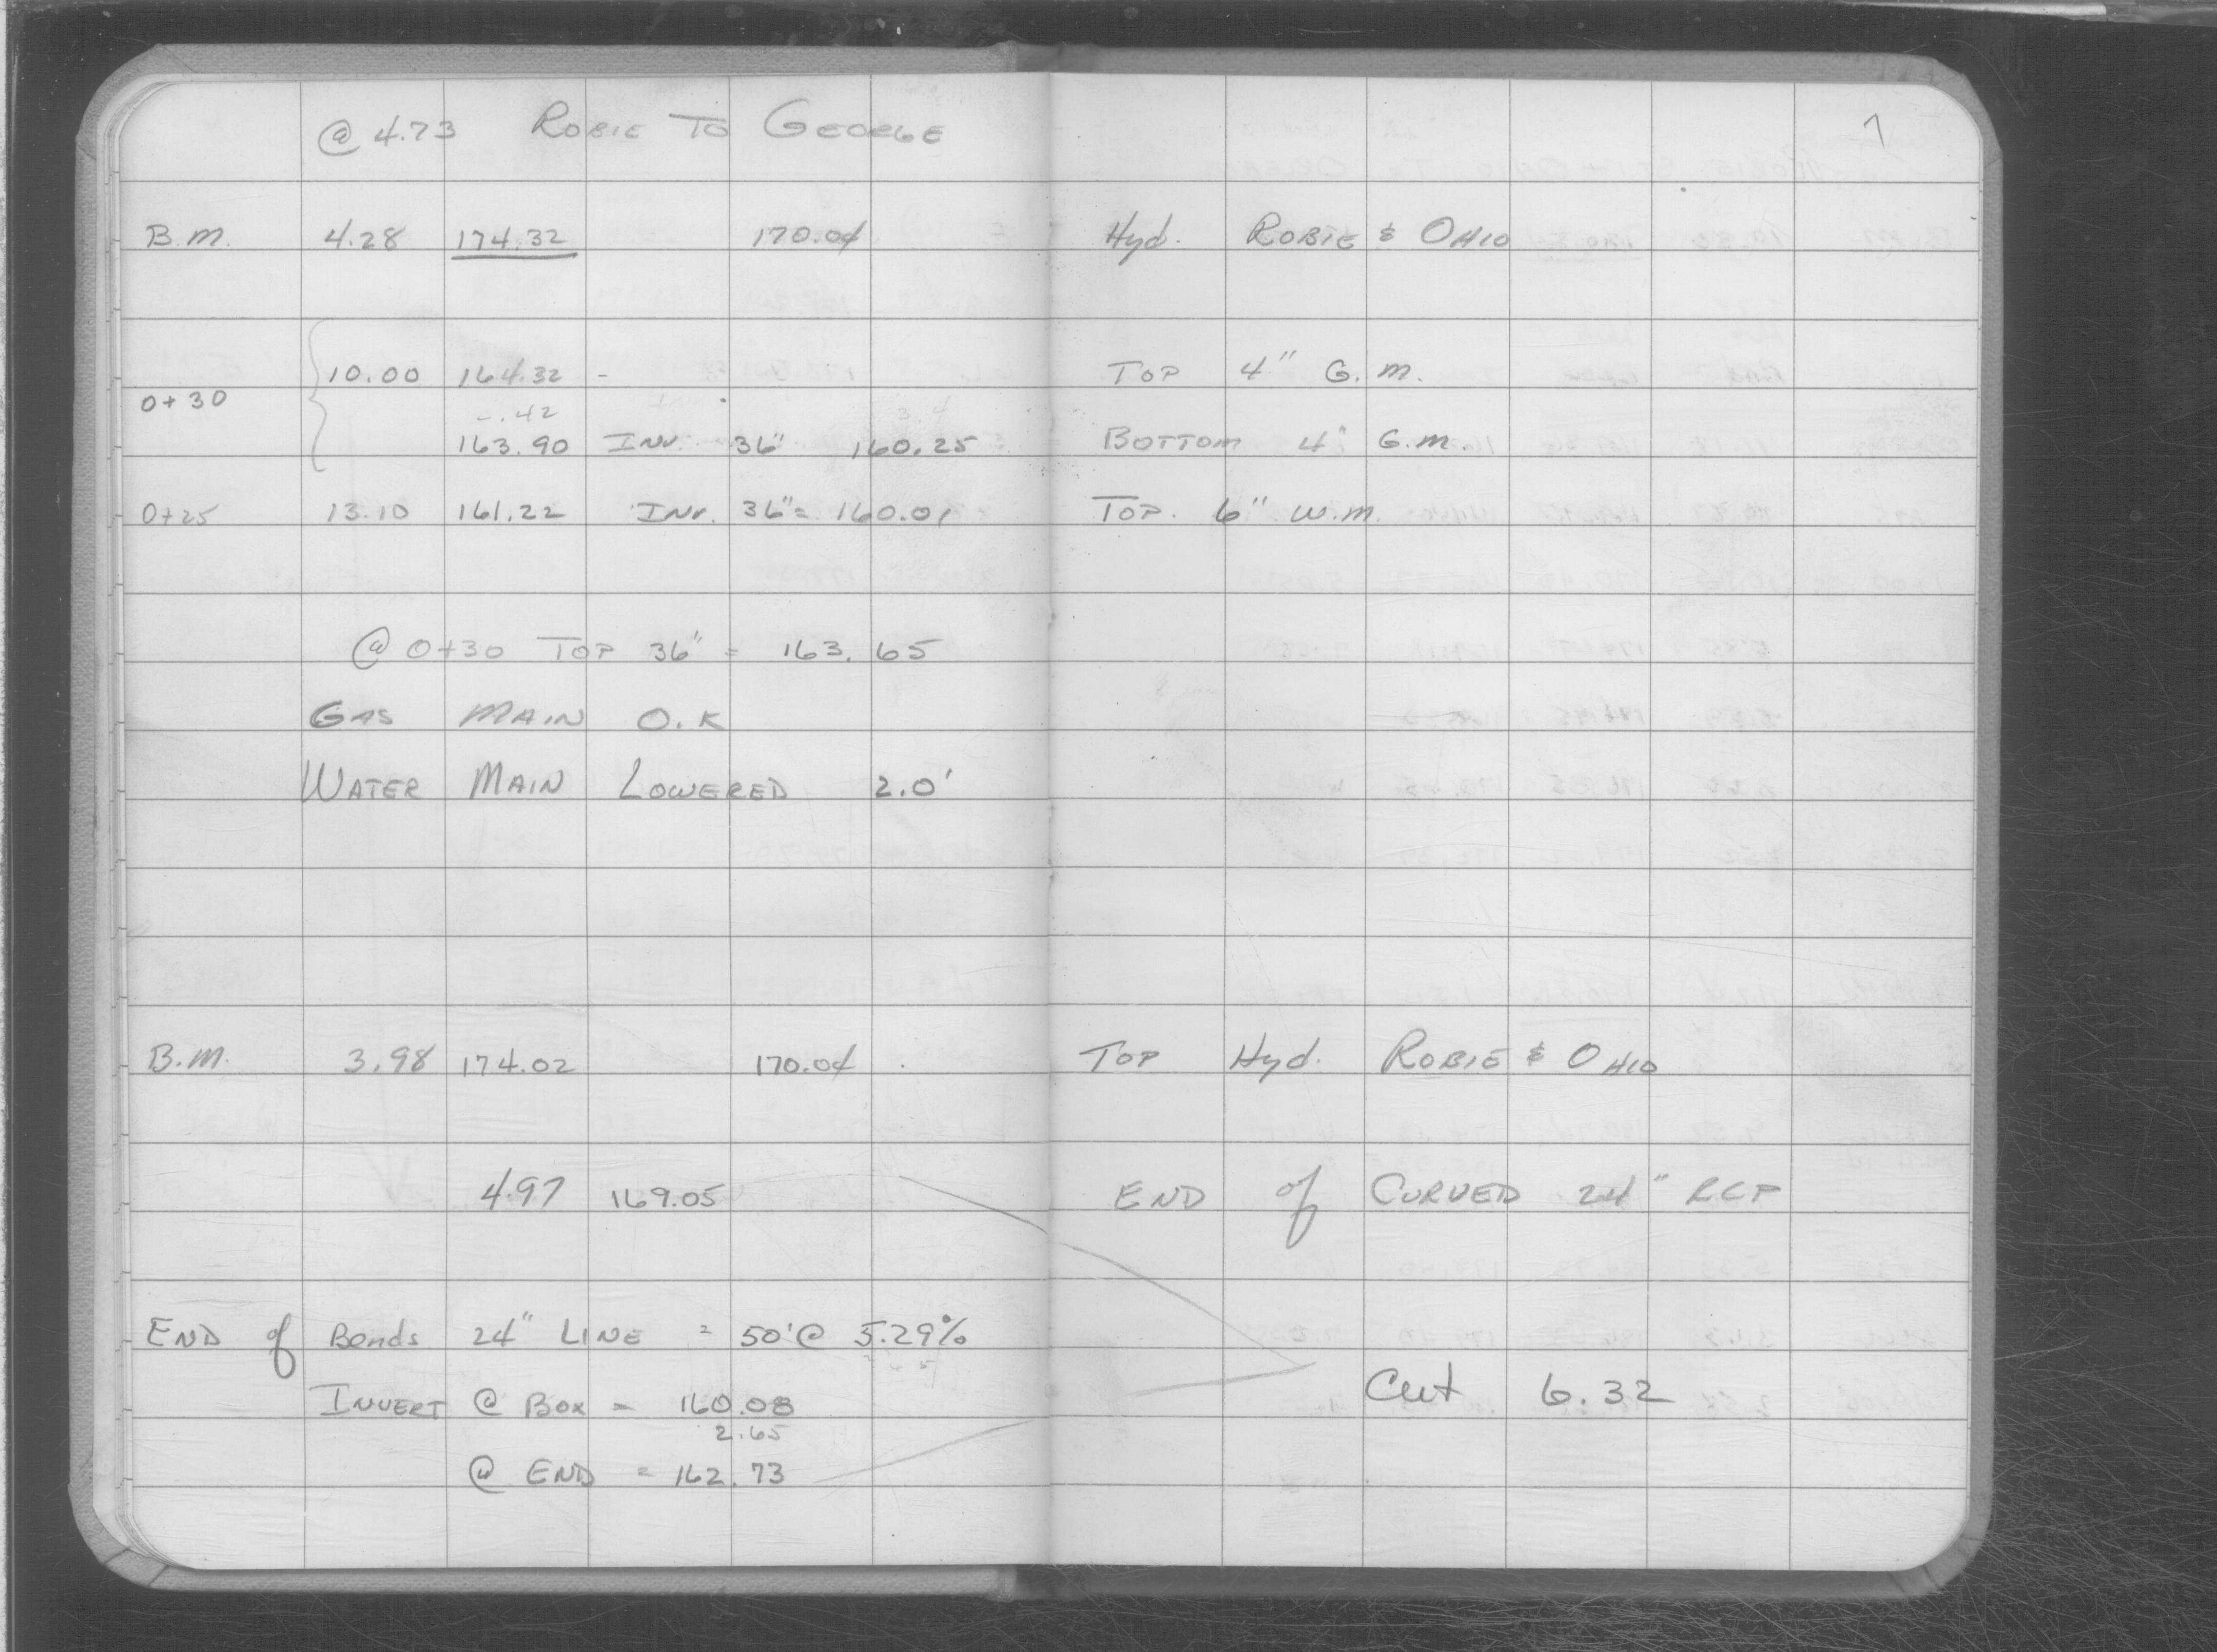 @ 4.73 ROBIE TO GEORGE
7
B.M. 4.28 174.32 170.04 Hyd. ROBIE & OHIO
10.00 164.32 - TOP 4" G.M.
0+30
-.42
163.90 INV. 36" 160.25 BOTTOM 4" G.M.
0+25 13.10 161.22 INV. 36" = 160.01 TOP. 6" W.M.
@ 0+30 TOP 36" = 163.65
GAS MAIN O.K
WATER MAIN LOWERED 2.0'
B.M. 3.98 174.02 170.04 TOP Hyd. ROBIE & OHIO
4.97 169.05 END of CURVED 24" RCP
END of Bends 24" LINE = 50' @ 5.29%
INVERT @ BOX = 160.08 Cut 6.32
2.65
@ END = 162.73